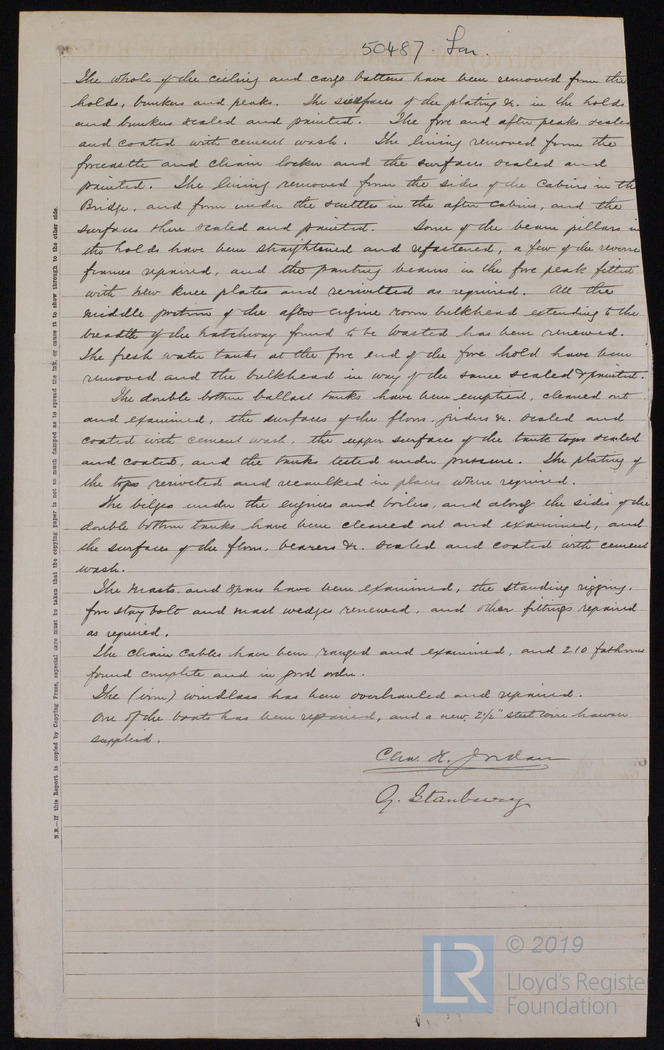 50487. Lon.
The whole of the ceiling and cargo battens have been removed from the
holds, bunkers and peaks. The surfaces of the plating &c. in the holds
and bunkers scaled and painted. The fore and after peaks scaled
and coated with cement wash. The lining removed from the
forecastle and chain locker and the surfaces scaled and
painted. The lining removed from the sides of the Cabins in the
Bridge, and from under the scuttles in the after cabins, and the
surfaces there scaled and painted. Some of the beam pillars in
the holds have been straightened and refastened, a few of the reverse
frames repaired, and the panting beams in the fore peak fitted
with new knee plates and rerivetted as required. All the
middle portion of the after engine room bulkhead extending to the
breadth of the hatchway found to be wasted has been renewed.
The fresh water tanks at the fore end of the fore hold have been
removed and the bulkhead in way of the same scaled & painted.
The double bottom ballast tanks have been emptied, cleaned out
and examined, the surfaces of the floors, girders &c. scaled and
coated with cement wash, the upper surfaces of the tank tops scaled
and coated, and the tanks tested under pressure. The plating of
the tops reriveted and recaulked in places where required.
The bilges under the engines and boilers, and along the sides of the
double bottom tanks have been cleaned out and examined, and
the surfaces of the floors, bearers &c. scaled and coated with cement
wash.
The Masts and Spars have been examined, the standing rigging,
fore stay bolt and mast wedges renewed, and other fittings repaired
as required.
The chain cables have been ranged and examined, and 210 fathoms
found complete and in good order.
The (iron) windlass has been overhauled and repaired.
One of the boats has been repaired, and a new 2½" steel wire hawser
supplied.
Chas. H. Jordan
G. Stanbury
N.B.—If this Report is copied by Copying Press, especial care must be taken that the copying paper is not so much damped as to spread the ink, or cause it to show through to the other side.
LR
© 2019
Lloyd's Register
Foundation